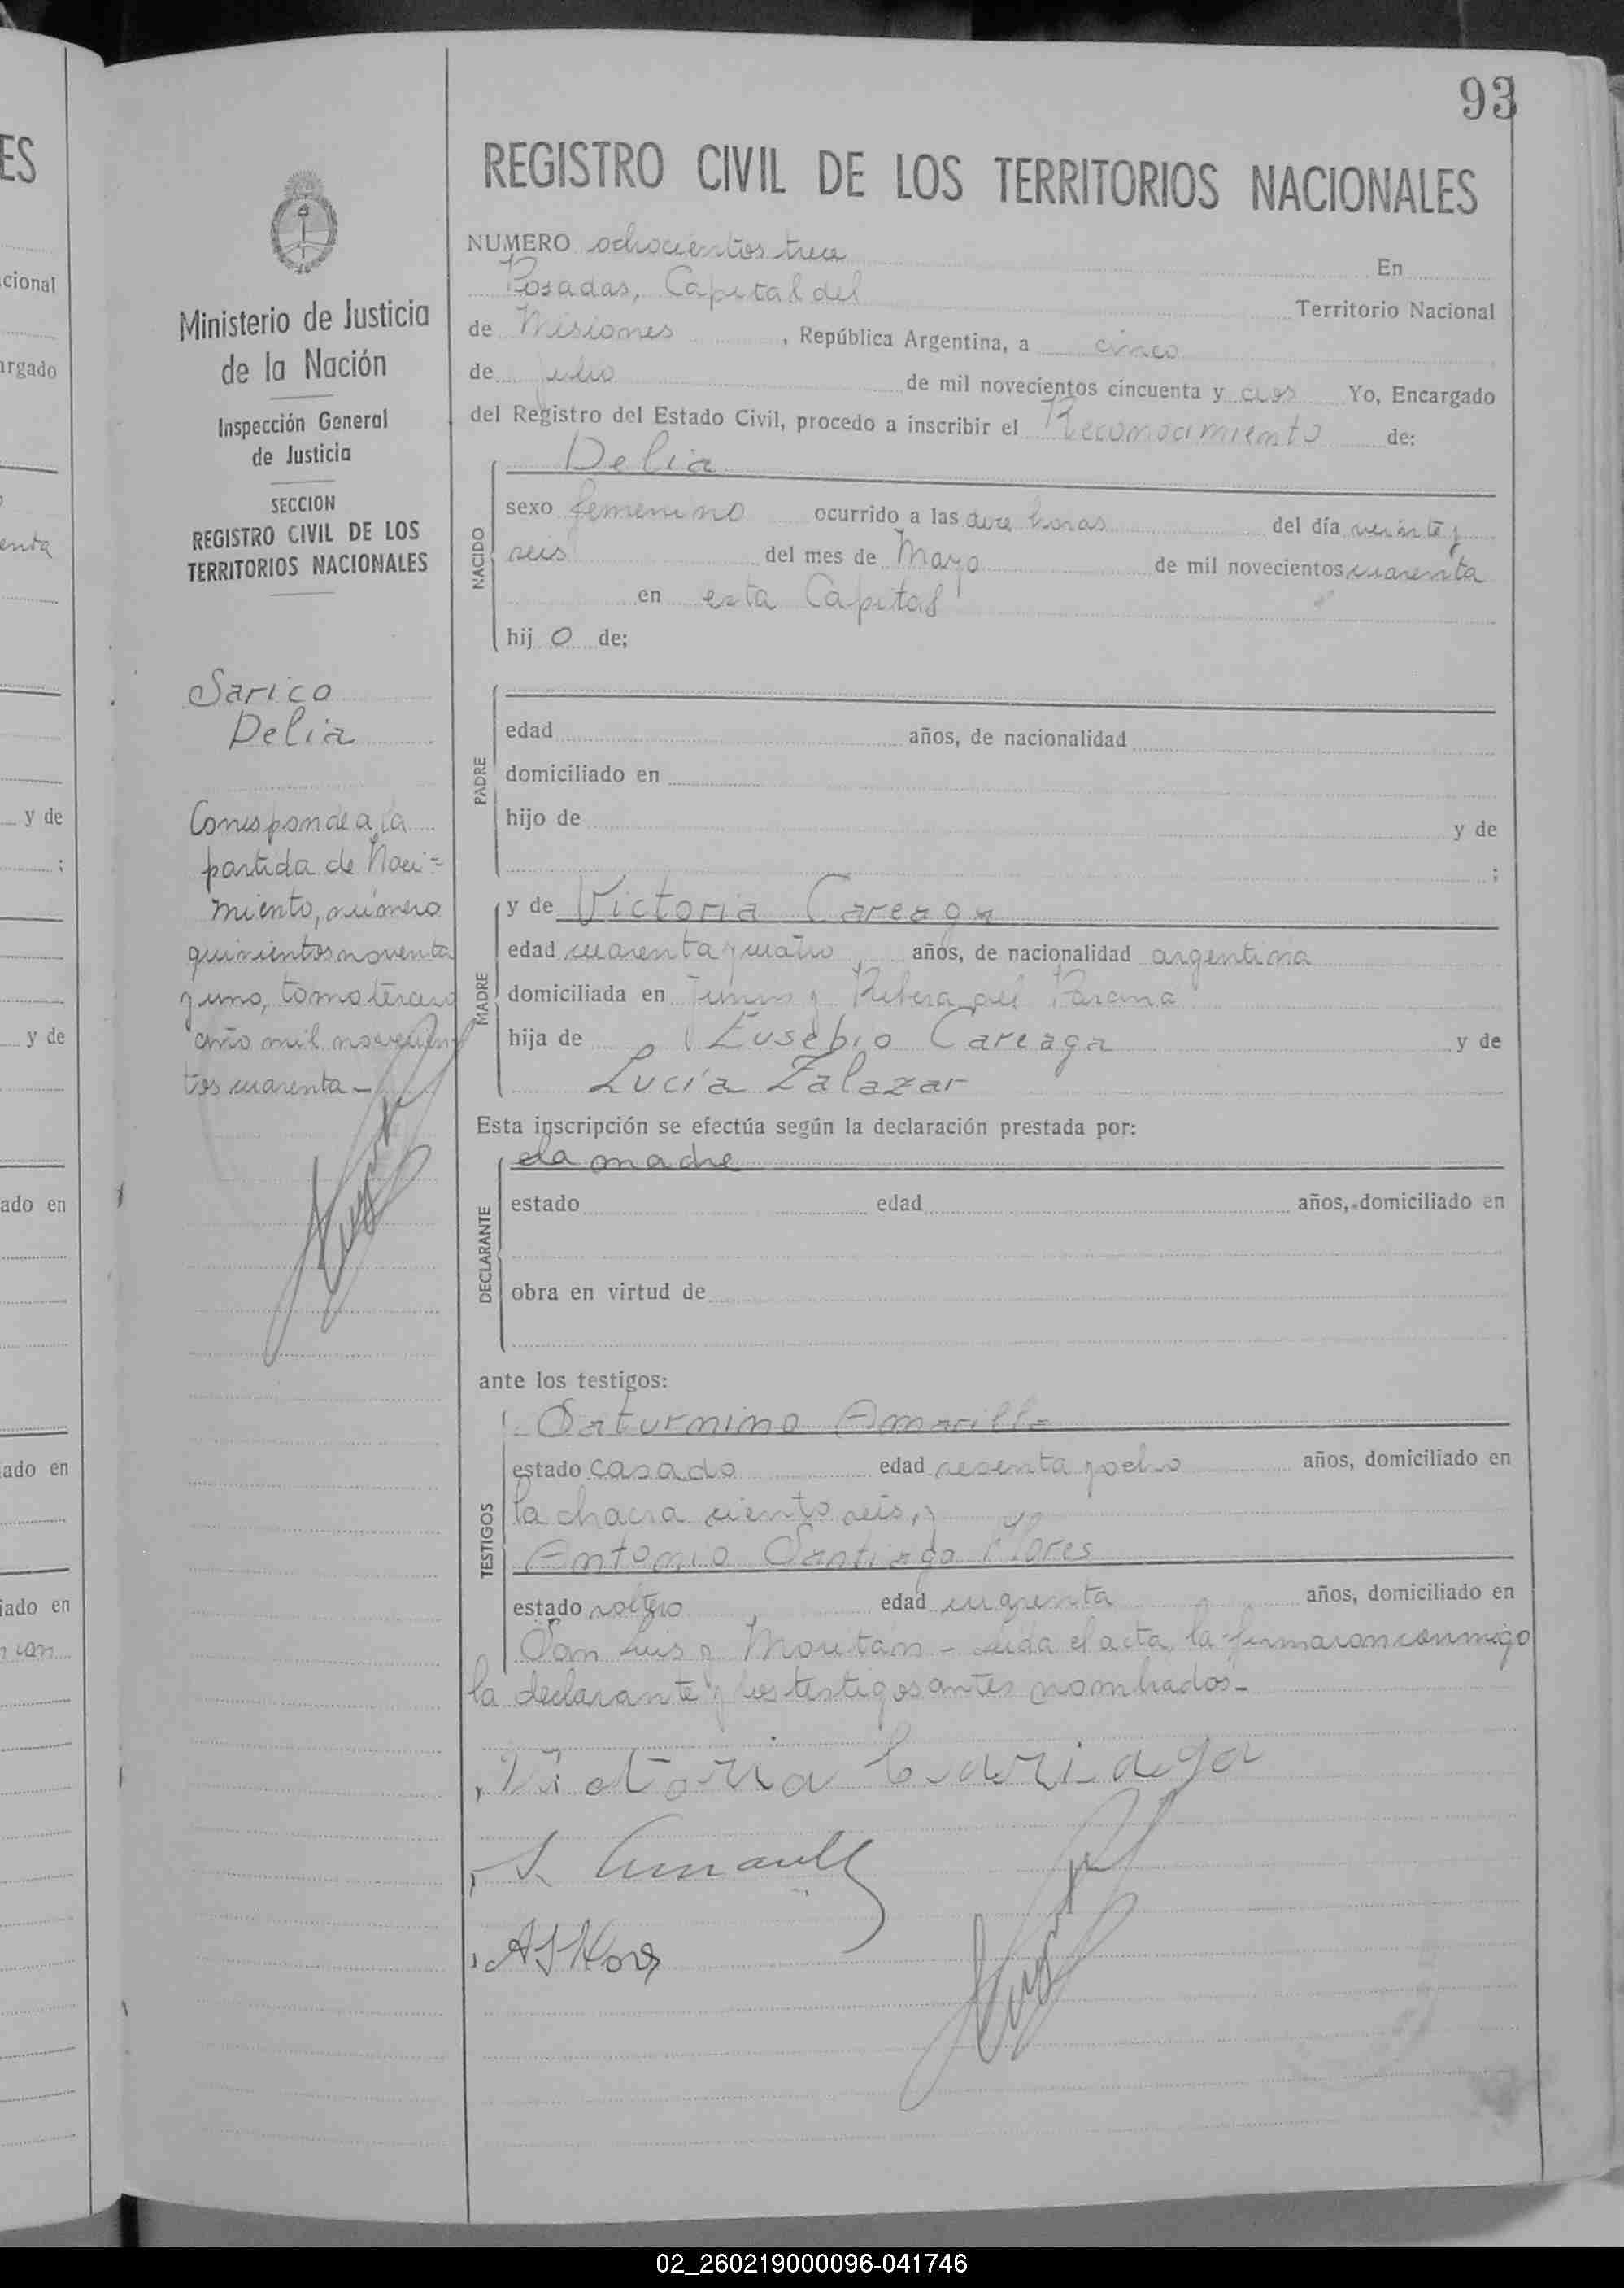 93
REGISTRO CIVIL DE LOS TERRITORIOS NACIONALES
NUMERO ochocientos trece En
Posadas, Capital del Territorio Nacional
de Misiones, República Argentina, a cinco
de julio de mil novecientos cincuenta y dos Yo, Encargado
del Registro del Estado Civil, procedo a inscribir el Reconocimiento de:
NACIDO
Delia
sexo femenino ocurrido a las doce horas del día veinte y
seis del mes de Mayo de mil novecientos cuarenta
en esta Capital
hij o de;
PADRE
edad años, de nacionalidad
domiciliado en
hijo de y de
;
MADRE
y de Victoria Careaga
edad cuarenta y cuatro años, de nacionalidad argentina
domiciliada en Junin y Ribera del Parana
hija de Eusebio Careaga y de
Lucía Zalazar
Esta inscripción se efectúa según la declaración prestada por:
DECLARANTE
la madre
estado edad años, domiciliado en
obra en virtud de
ante los testigos:
TESTIGOS
Saturnino Amarilla
estado casado edad sesenta y ocho años, domiciliado en
la chacra ciento seis, y
Antonio Santiago Flores
estado soltero edad cuarenta años, domiciliado en
San Luis y Moutan - Leida el acta, la firmaron conmigo
la declarante y los testigos antes nombrados -
Victoria Cariaga
Ministerio de Justicia
de la Nación
Inspección General
de Justicia
SECCION
REGISTRO CIVIL DE LOS
TERRITORIOS NACIONALES
Sarico
Delia
Corresponde a la
partida de Naci=
miento, número
quinientos noventa
y uno, tomo tercero
año mil novecien
tos cuarenta -
ES
cional
argado
enta
y de
;
y de
ado en
ado en
iado en
02_260219000096-041746